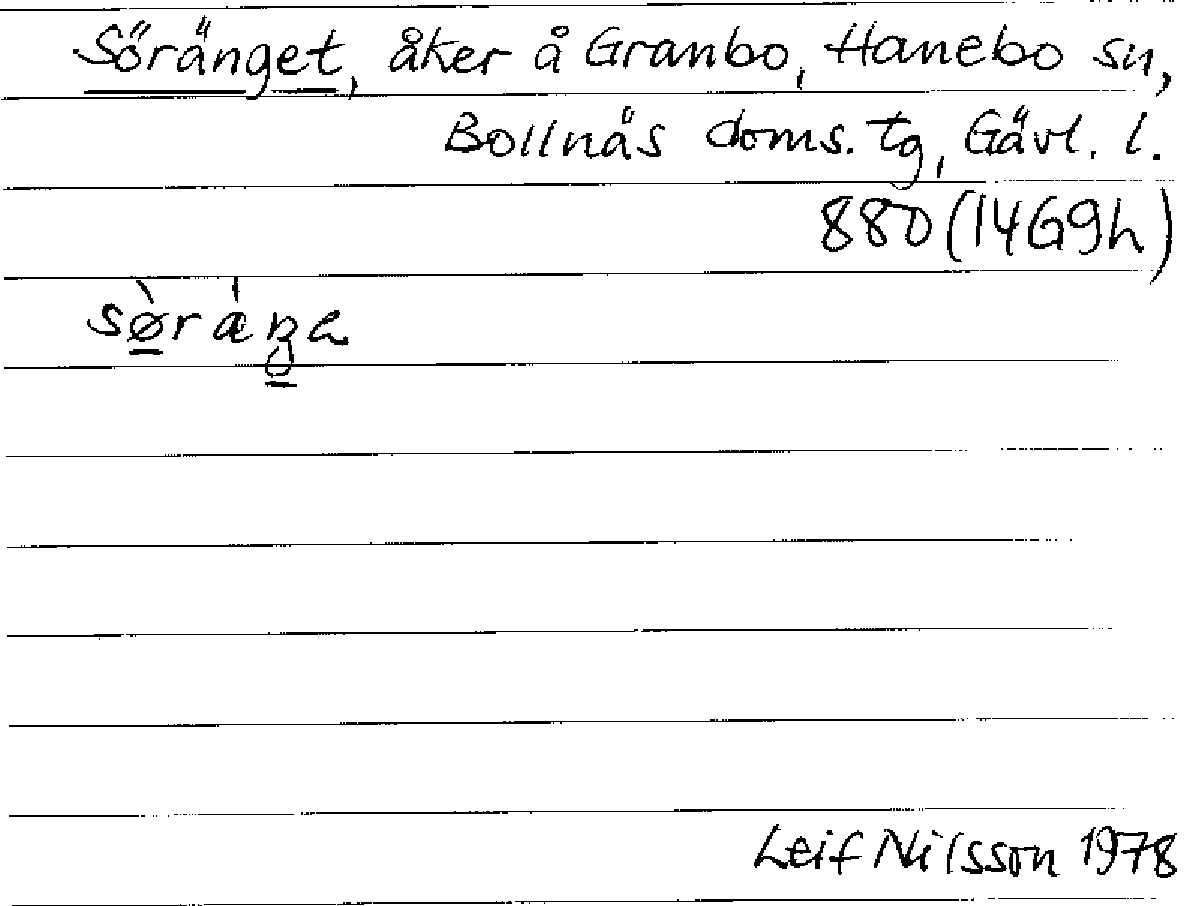 Söränget, åker å Granbo, Hanebo sn,
Bollnäs doms. tg, Gävl. l.
880 (14G9h)
Leif Nilsson 1978